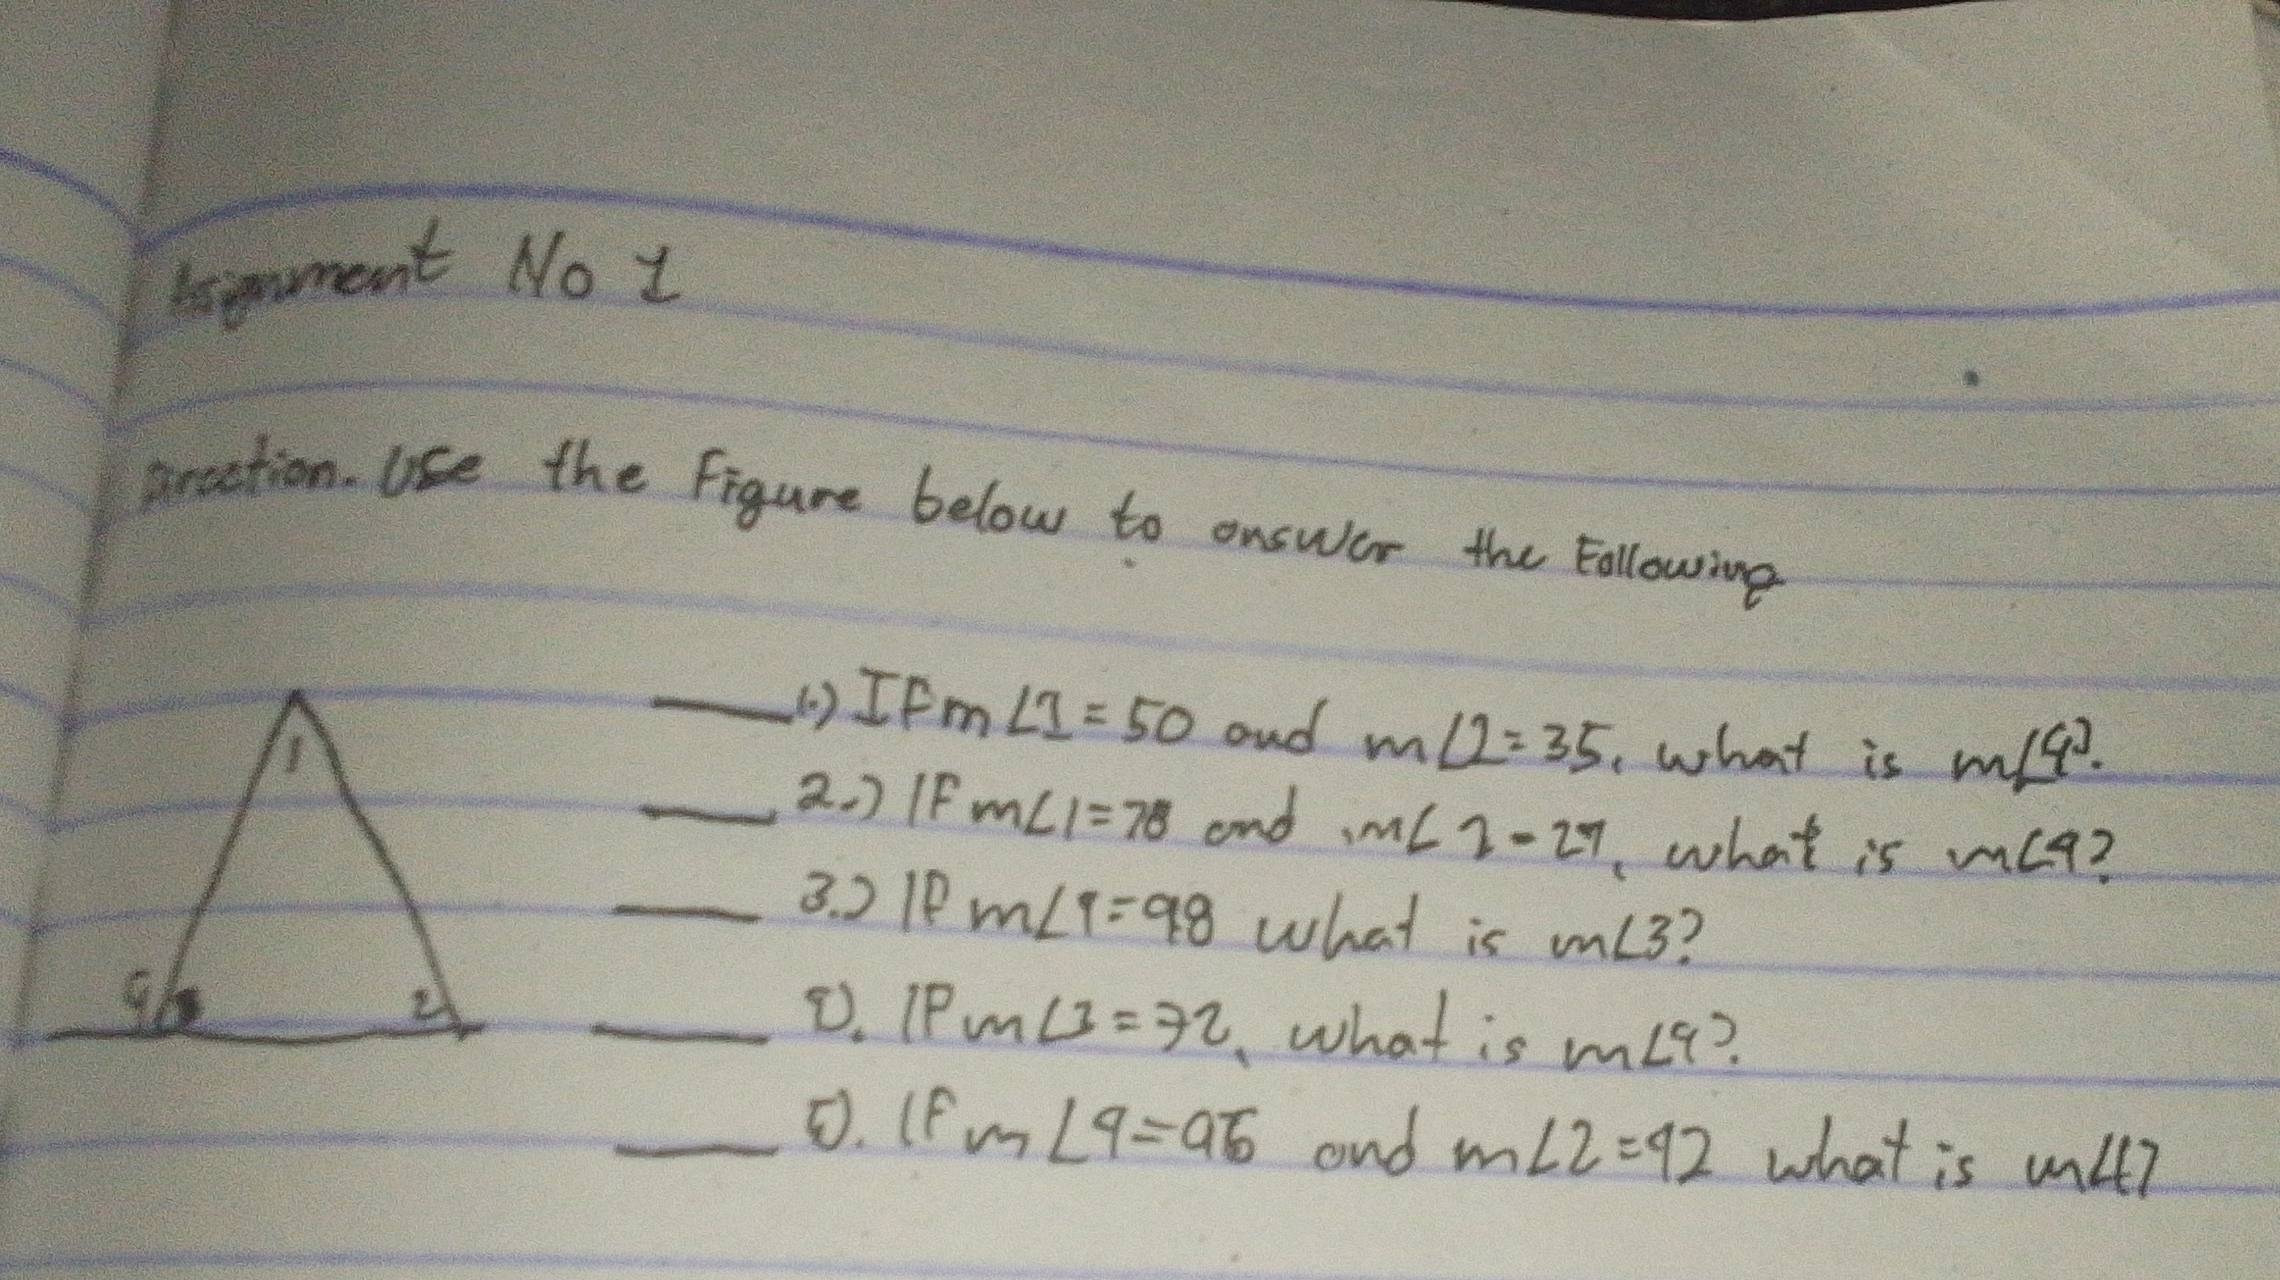 Assignment No 1
Direction. Use the Figure below to answer the Following
1.) If m∠1=50 and m∠2=35, what is m∠4?
2.) If m∠1=78 and m∠2=27, what is m∠4?
3.) If m∠4=98 what is m∠3?
4). If m∠3=72, what is m∠4?
5). If m∠4= and m∠2=42 what is
1
4
2